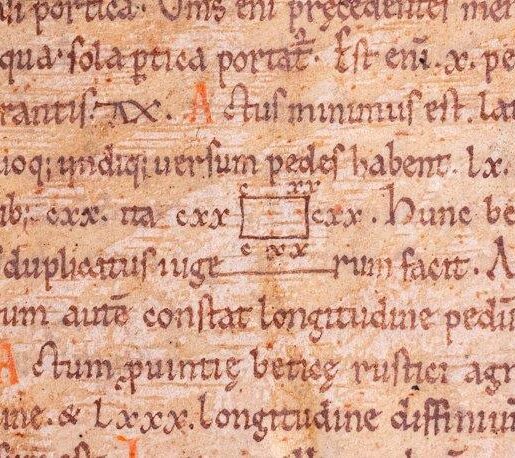 portica. Vnis eni precedentes men
qua sola ptica portat. Est eni. x. pe
rantis. AX. Actus minimus est. lat
uoq; undiq; uersum pedes habent. lx.
ib;. cxx. ita cxx c xx cxx. Hunc be
c xx
duplicatus iuge rum facit. A
um aute constat longitudine pedu
Actum puintie betice rustici agn
ine. & lxxx. longitudine diffiniun